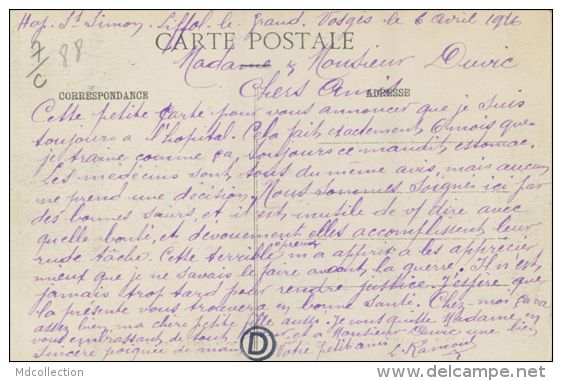 Hop. St Simon. Liffol-le-Grand. Vosges le 6 Avril 1916
CARTE POSTALE
Madame & Monsieur Duvic
Chers Amis
CORRESPONDANCE
ADRESSE
Cette petite carte pour vous annoncer que je suis
toujours a l'hopital. Cela fait exactement 6 mois que
je traine, comme ça, toujours ce maudit estomac.
Les medecins sont tous du même avis, mais aucun
ne prend une décision. Nous sommes soignés ici par
des bonnes sœurs, et il est inutile de vs dire avec
quelle bonté, et dévouement elles accomplissent leur
rude tâche. Cette terrible épreuve m'a appris a les apprécier
mieux que je ne savais le faire avant la guerre. Il n'est
jamais trop tard pour rendre justice. J'espère que
la présente vous trouvera en bonne santé. Chez moi ça va
assez bien, ma chere petite fille aussi. Je vous quitte Madame, en
vous embrassant de tout et a Monsieur Duvic une bien
Sincère poignée de main Votre petit ami
D
Mdcollection
delcampe.net